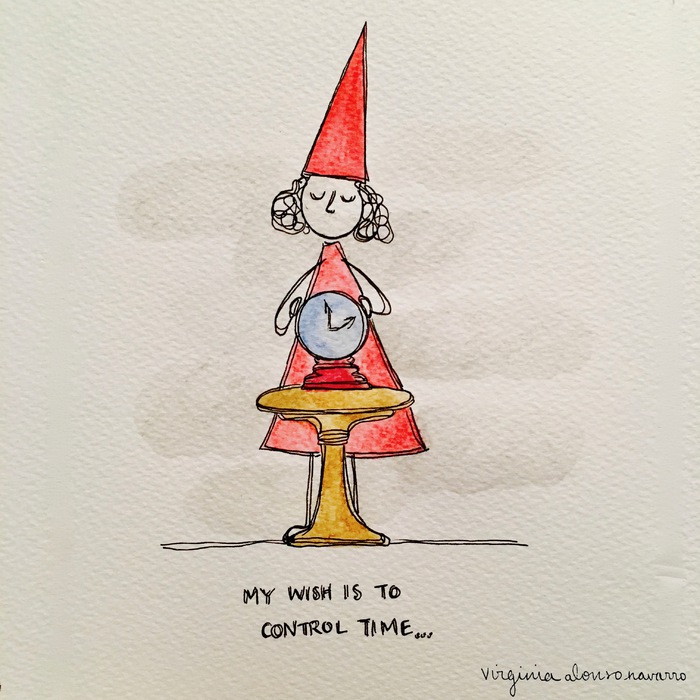 MY WISH IS TO
CONTROL TIME...
virginia alonso navarro